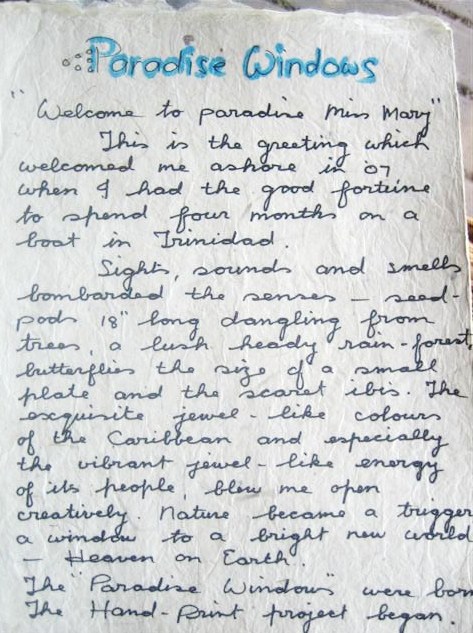 Paradise Windows
"Welcome to paradise Miss Mary"
This is the greeting which
welcomed me ashore in '07
when I had the good fortune
to spend four months on a
boat in Trinidad.
Sights, sounds and smells
bombarded the senses – seed-
pods 18" long dangling from
trees, a lush heady rain-forest,
butterflies the size of a small
plate and the scaret ibis. The
excquisite jewel-like colours
of the Caribbean and especially
the vibrant jewel-like energy
of its people, blew me open
creatively. Nature became a trigger
a window to a bright new world
– Heaven on Earth.
The "Paradise Windows" were born
The Hand-Print project began.